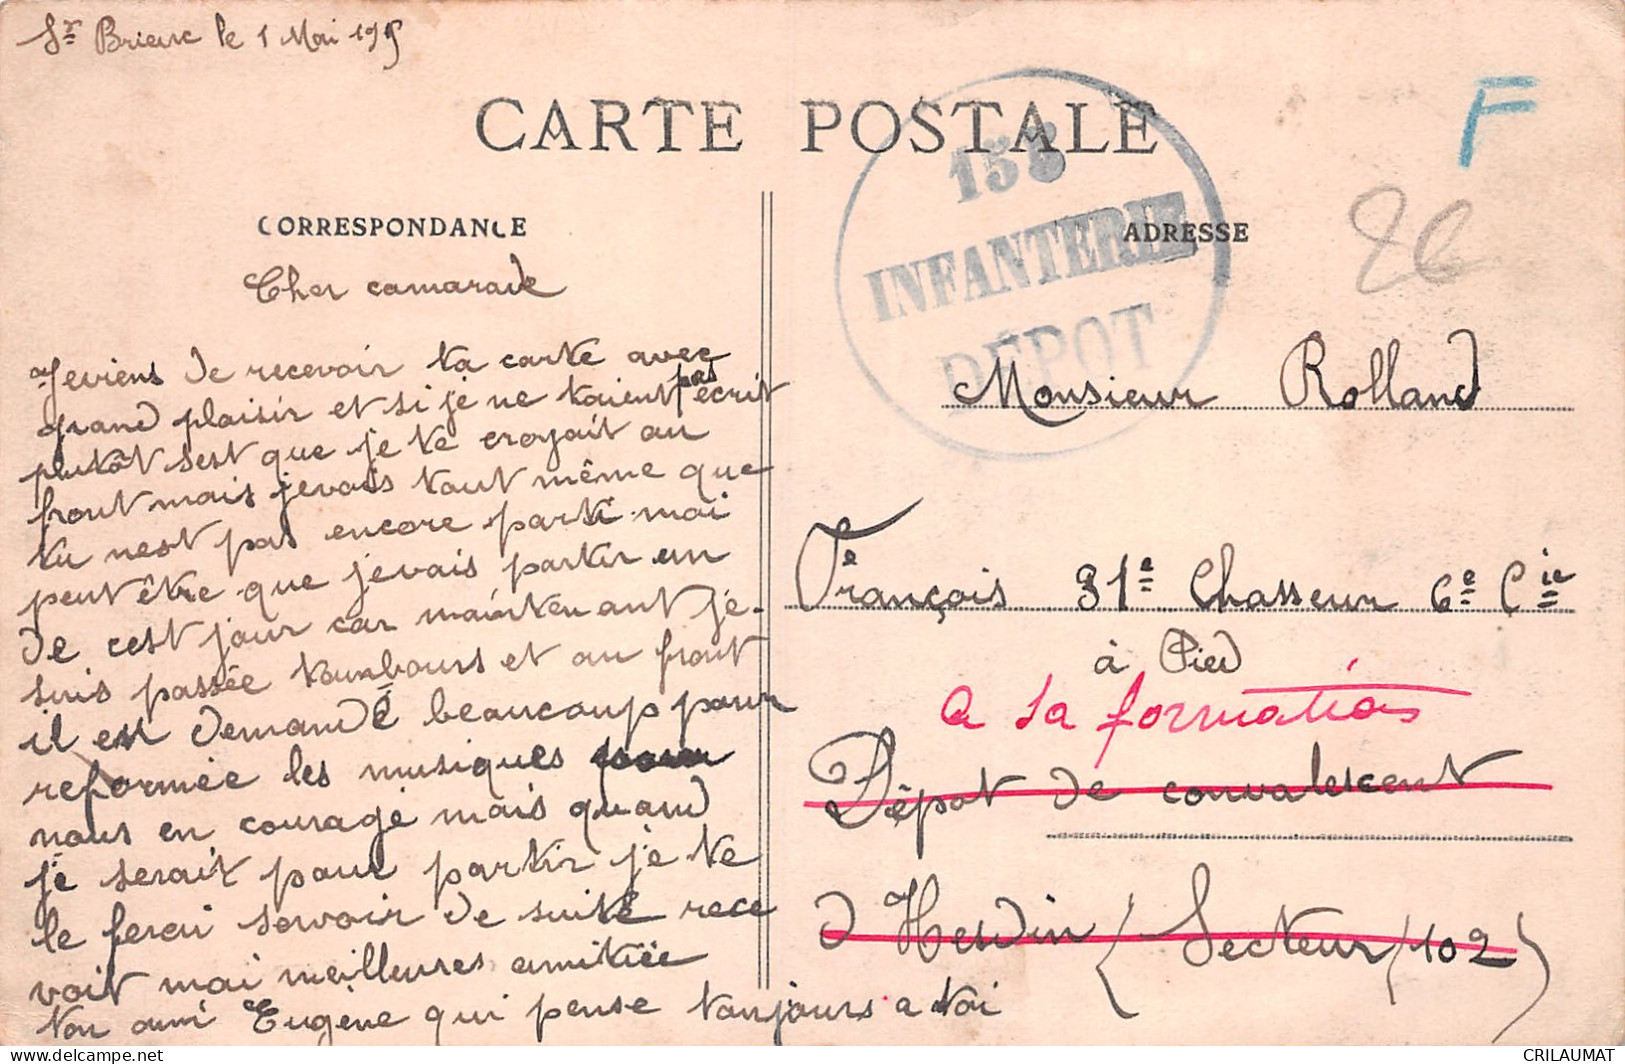 St Brieuc le 1 Mai 1915
CARTE POSTALE
F
26
153
INFANTERIE
DÉPOT
CORRESPONDANCE
ADRESSE
Cher camarade
Je viens de recevoir ta carte avec
grand plaisir et si je ne taient pas écrit
plutôt sest que je te croyait au
front mais jevois tout même que
tu nest pas encore parti moi
peut être que jevais partir un
de cest jour car maintenant je
suis passée tambours et au front
il est demandé beaucoup pour
reformée les musiques pour
nous en courage mais quand
je serait pour partir je te
le ferai savoir de suite rece
voit mai meilleures amitiée
ton ami Eugène qui pense toujours a toi
Monsieur Rolland
François 31e Chasseur 6e Cie
à Pied
a sa formation
Dépot de convalescent
d Hesdin (Secteur 102)
CRILAUMAT